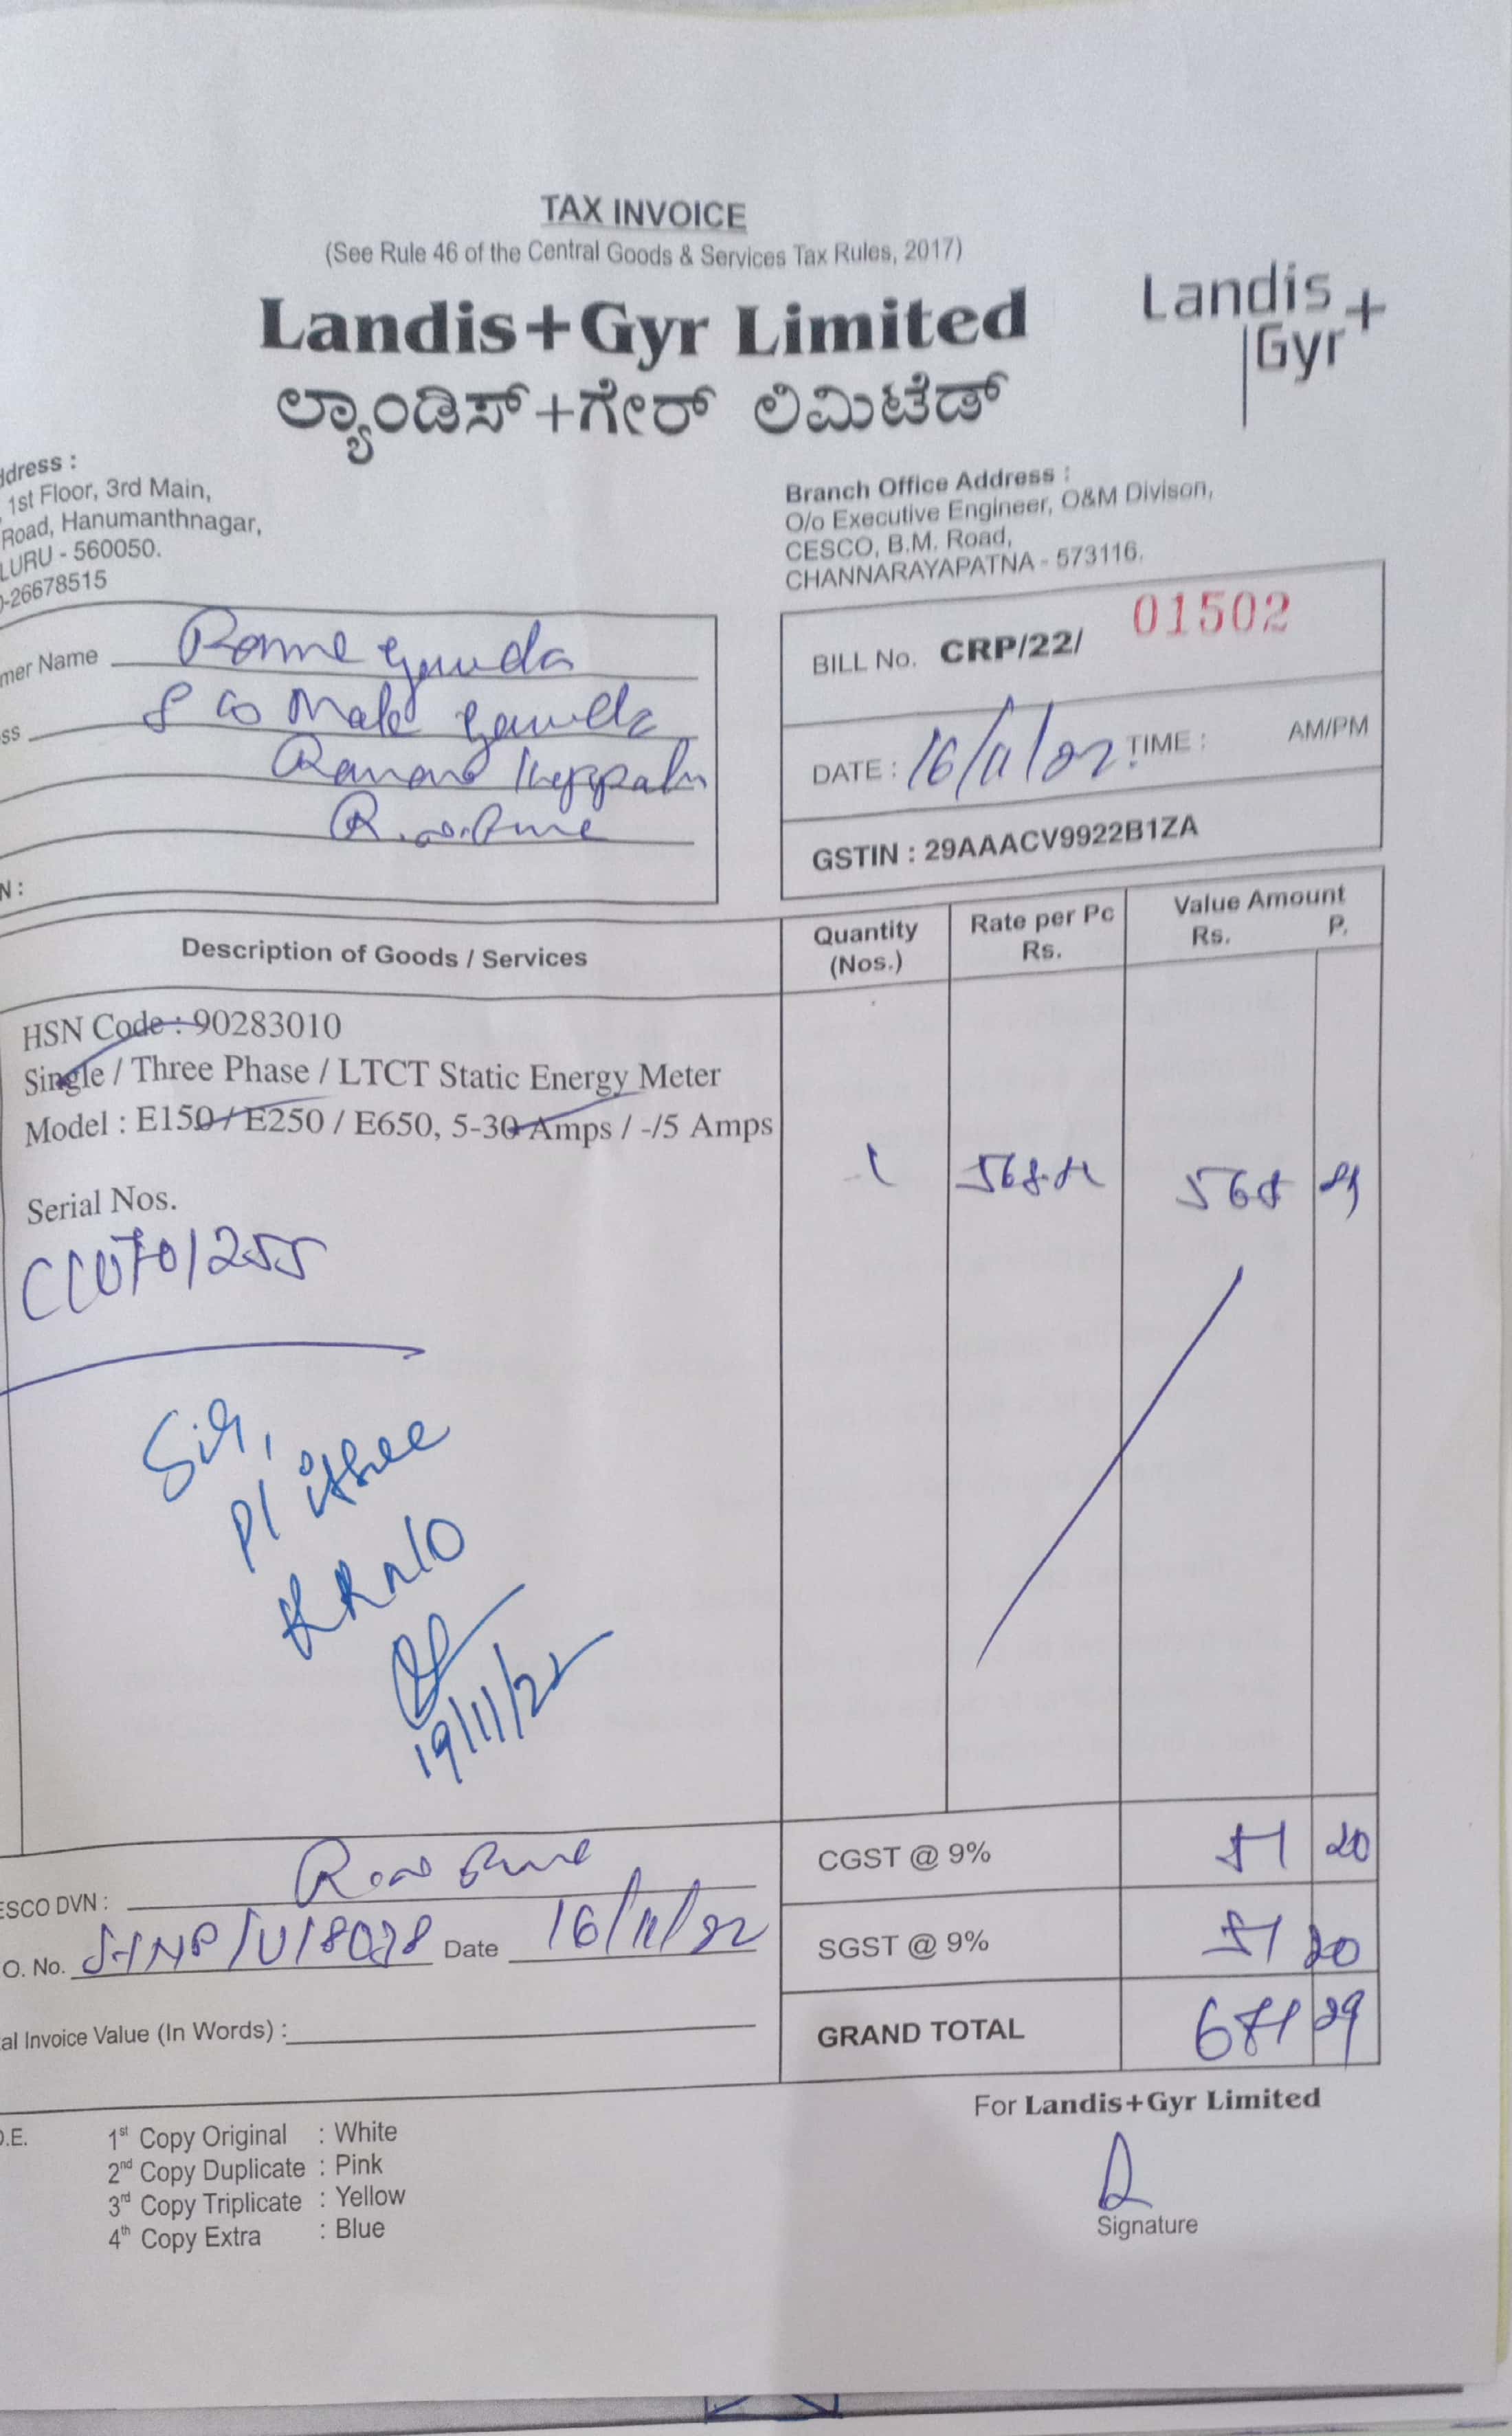 TAX INVOICE
(See Rule 46 of the Central Goods & Services Tax Rules, 2017)
Landis+Gyr Limited
Landis+
Gyr
ಲ್ಯಾಂಡಿಸ್+ಗೇರ್ ಲಿಮಿಟೆಡ್
ddress :
1st Floor, 3rd Main,
Road, Hanumanthnagar,
LURU - 560050.
-26678515
Branch Office Address :
O/o Executive Engineer, O&M Divison,
CESCO, B.M. Road,
CHANNARAYAPATNA - 573116.
mer Name Rame gowda
ss
gowda
N :
BILL No. CRP/22/ 01502
DATE : 16/11/22 TIME : AM/PM
GSTIN : 29AAACV9922B1ZA
Description of Goods / Services Quantity (Nos.) Rate per Pc Rs. Value Amount Rs. P.
HSN Code : 90283010
Single / Three Phase / LTCT Static Energy Meter
Model : E150 / E250 / E650, 5-30 Amps / -/5 Amps
1 568
Serial Nos.
Sir,
19/11/22
CGST @ 9% 51 20
ESCO DVN :
O. No. Date 16/11/22
SGST @ 9% 51 20
al Invoice Value (In Words) :
GRAND TOTAL 671 29
For Landis+Gyr Limited
O.E.
1st Copy Original : White
2nd Copy Duplicate : Pink
3rd Copy Triplicate : Yellow
4th Copy Extra : Blue
Signature